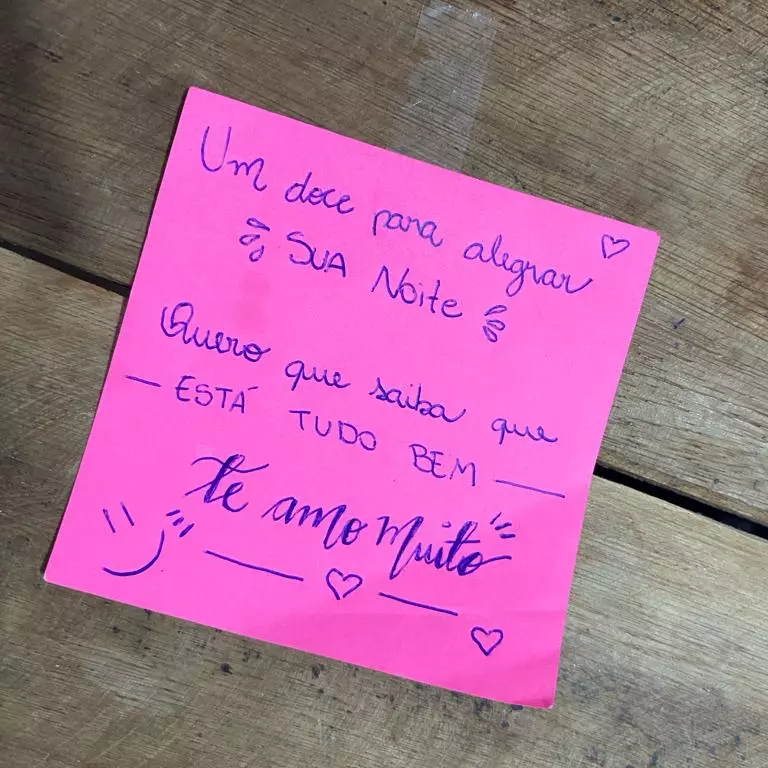 Um doce para alegrar
SUA Noite
Quero que saiba que
— ESTÁ TUDO BEM —
te amo muito